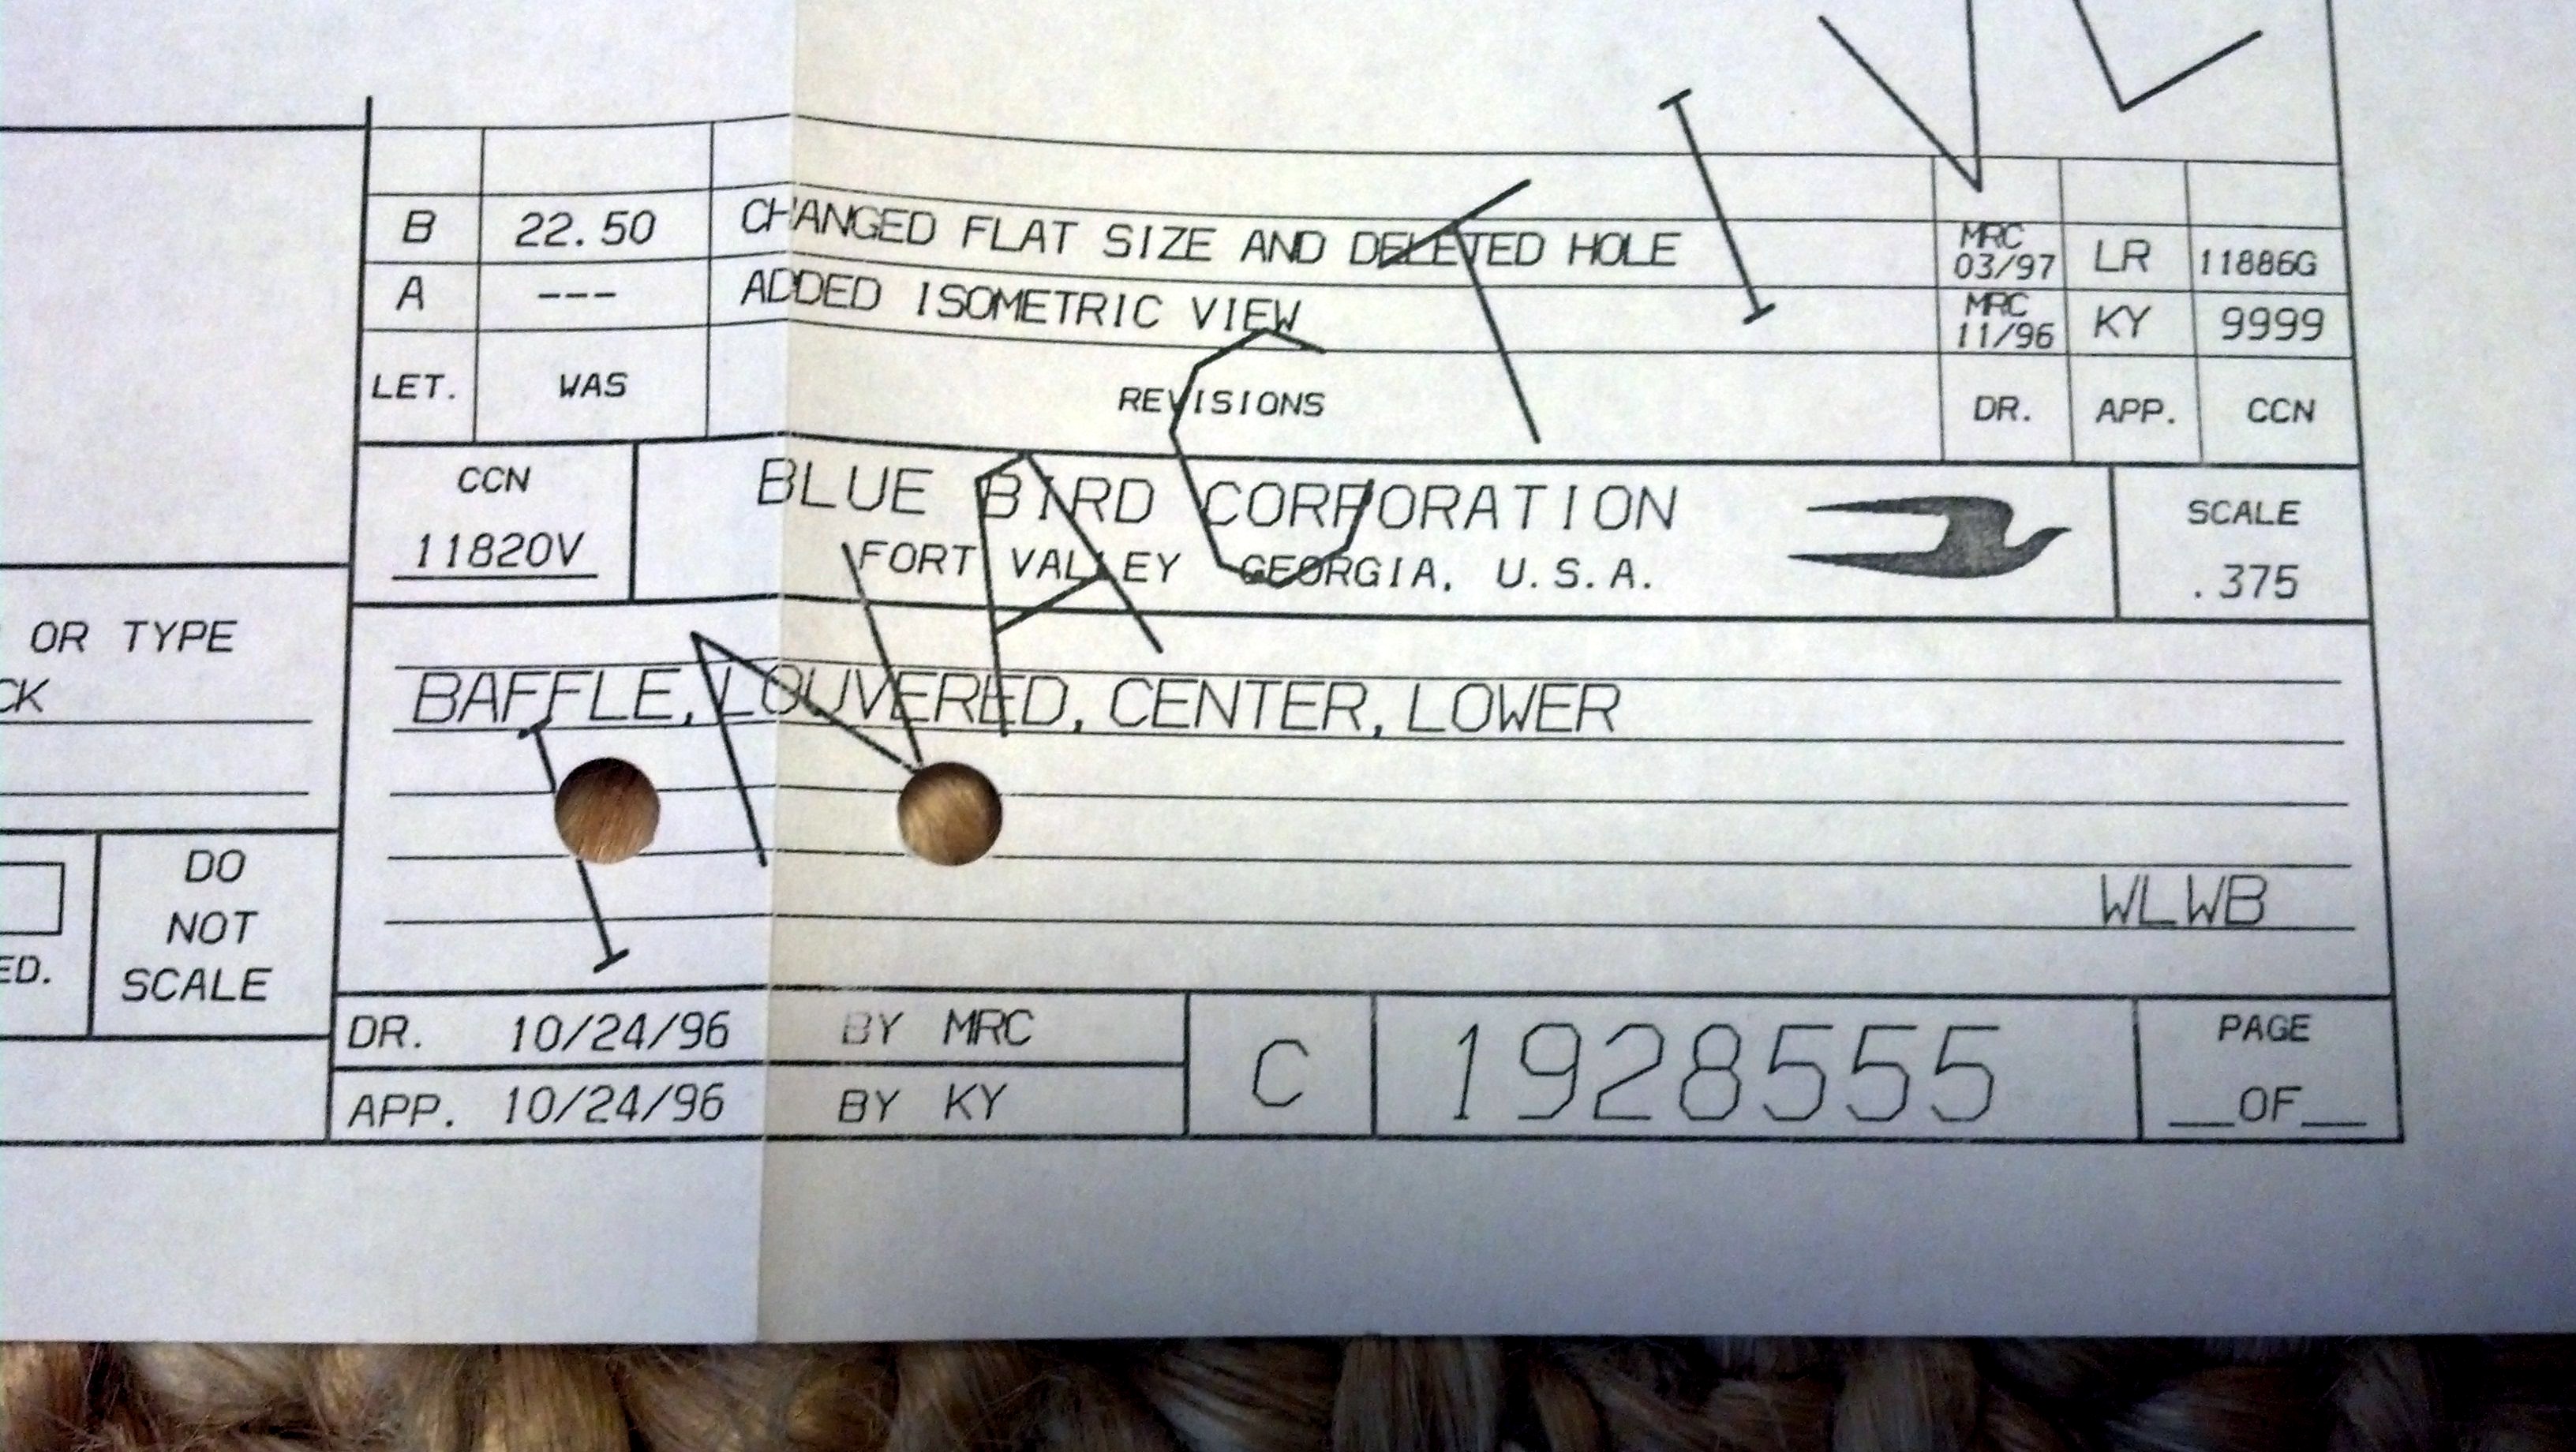 B 22.50 CHANGED FLAT SIZE AND DELETED HOLE MRC 03/97 LR 11886G
A --- ADDED ISOMETRIC VIEW MRC 11/96 KY 9999
LET. WAS REVISIONS DR. APP. CCN
CCN
11820V
BLUE BIRD CORPORATION
FORT VALLEY GEORGIA, U.S.A.
SCALE
.375
OR TYPE
CK
BAFFLE, LOUVERED, CENTER, LOWER
WLWB
ED.
DO
NOT
SCALE
DR. 10/24/96 BY MRC
APP. 10/24/96 BY KY
C
1928555
PAGE
__OF__